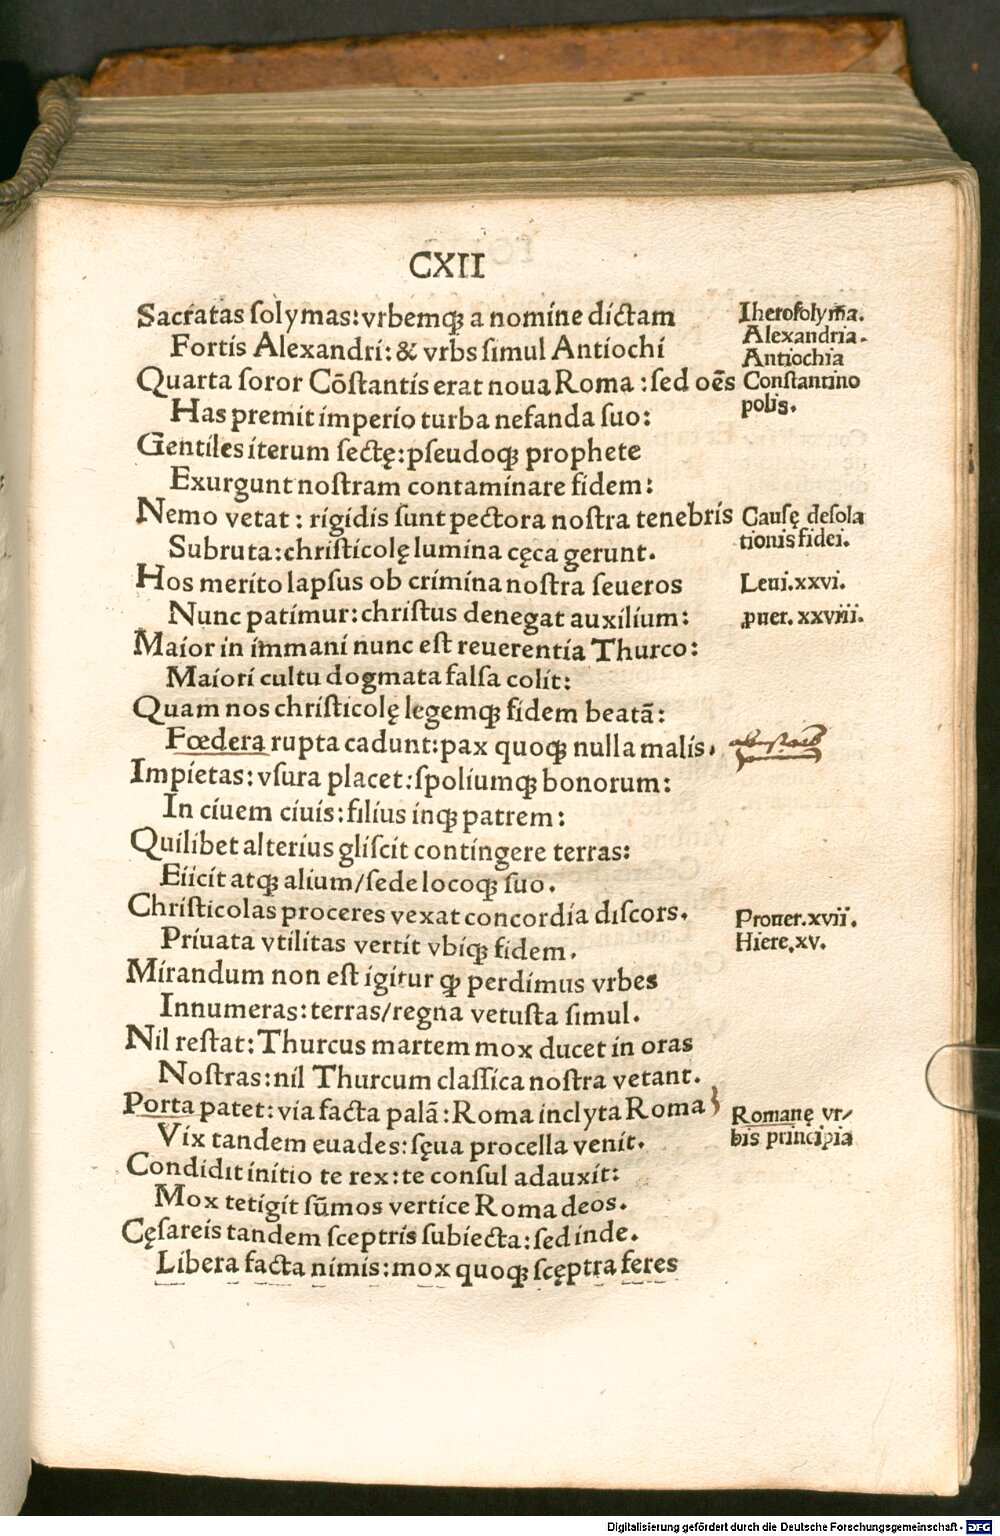 CXII
Sacratas ſolymas:vrbemqꝫ a nomine dictam
Iheroſolym̄a.
Fortis Alexandri:& vrbs ſimul Antiochi
Alexandria.
Antiochia
Quarta ſoror Cōſtantis erat noua Roma:ſed oēs
Conſtantino
polis.
Has premit imperio turba nefanda ſuo:
Gentiles iterum ſectę:pſeudoqꝫ prophete
Exurgunt noſtram contaminare fidem:
Nemo vetat: rigidis ſunt pectora noſtra tenebris
Cauſę deſola
tionis fidei.
Subruta:chriſticolę lumina cęca gerunt.
Hos merito lapſus ob crimina noſtra ſeueros
Leui.xxvi.
Nunc patimur:chriſtus denegat auxilium:
ꝓuer.xxviii.
Maior in immani nunc eſt reuerentia Thurco:
Maiori cultu dogmata falſa colit:
Quam nos chriſticolę legemqꝫ fidem beatā:
Fœdera rupta cadunt:pax quoqꝫ nulla malis.
Impietas:vſura placet:ſpoliumqꝫ bonorum:
In ciuem ciuis:filius inqꝫ patrem:
Quilibet alterius gliſcit contingere terras:
Eiicit atqꝫ alium/ſede locoqꝫ ſuo.
Chriſticolas proceres vexat concordia diſcors.
Prouer.xvii.
Priuata vtilitas vertit vbiqꝫ fidem.
Hiere.xv.
Mirandum non eſt igitur ꝙ perdimus vrbes
Innumeras:terras/regna vetuſta ſimul.
Nil reſtat:Thurcus martem mox ducet in oras
Noſtras:nil Thurcum claſſica noſtra vetant.
Porta patet:via facta palā:Roma inclyta Roma
Romanę vr/
bis principia
Vix tandem euades:ſęua procella venit.
Condidit initio te rex:te conſul adauxit:
Mox tetigit ſūmos vertice Roma deos.
Cęſareis tandem ſceptris ſubiecta:ſed inde.
Libera facta nimis:mox quoqꝫ ſcęptra feres
Digitalisierung gefördert durch die Deutsche Forschungsgemeinschaft - DFG